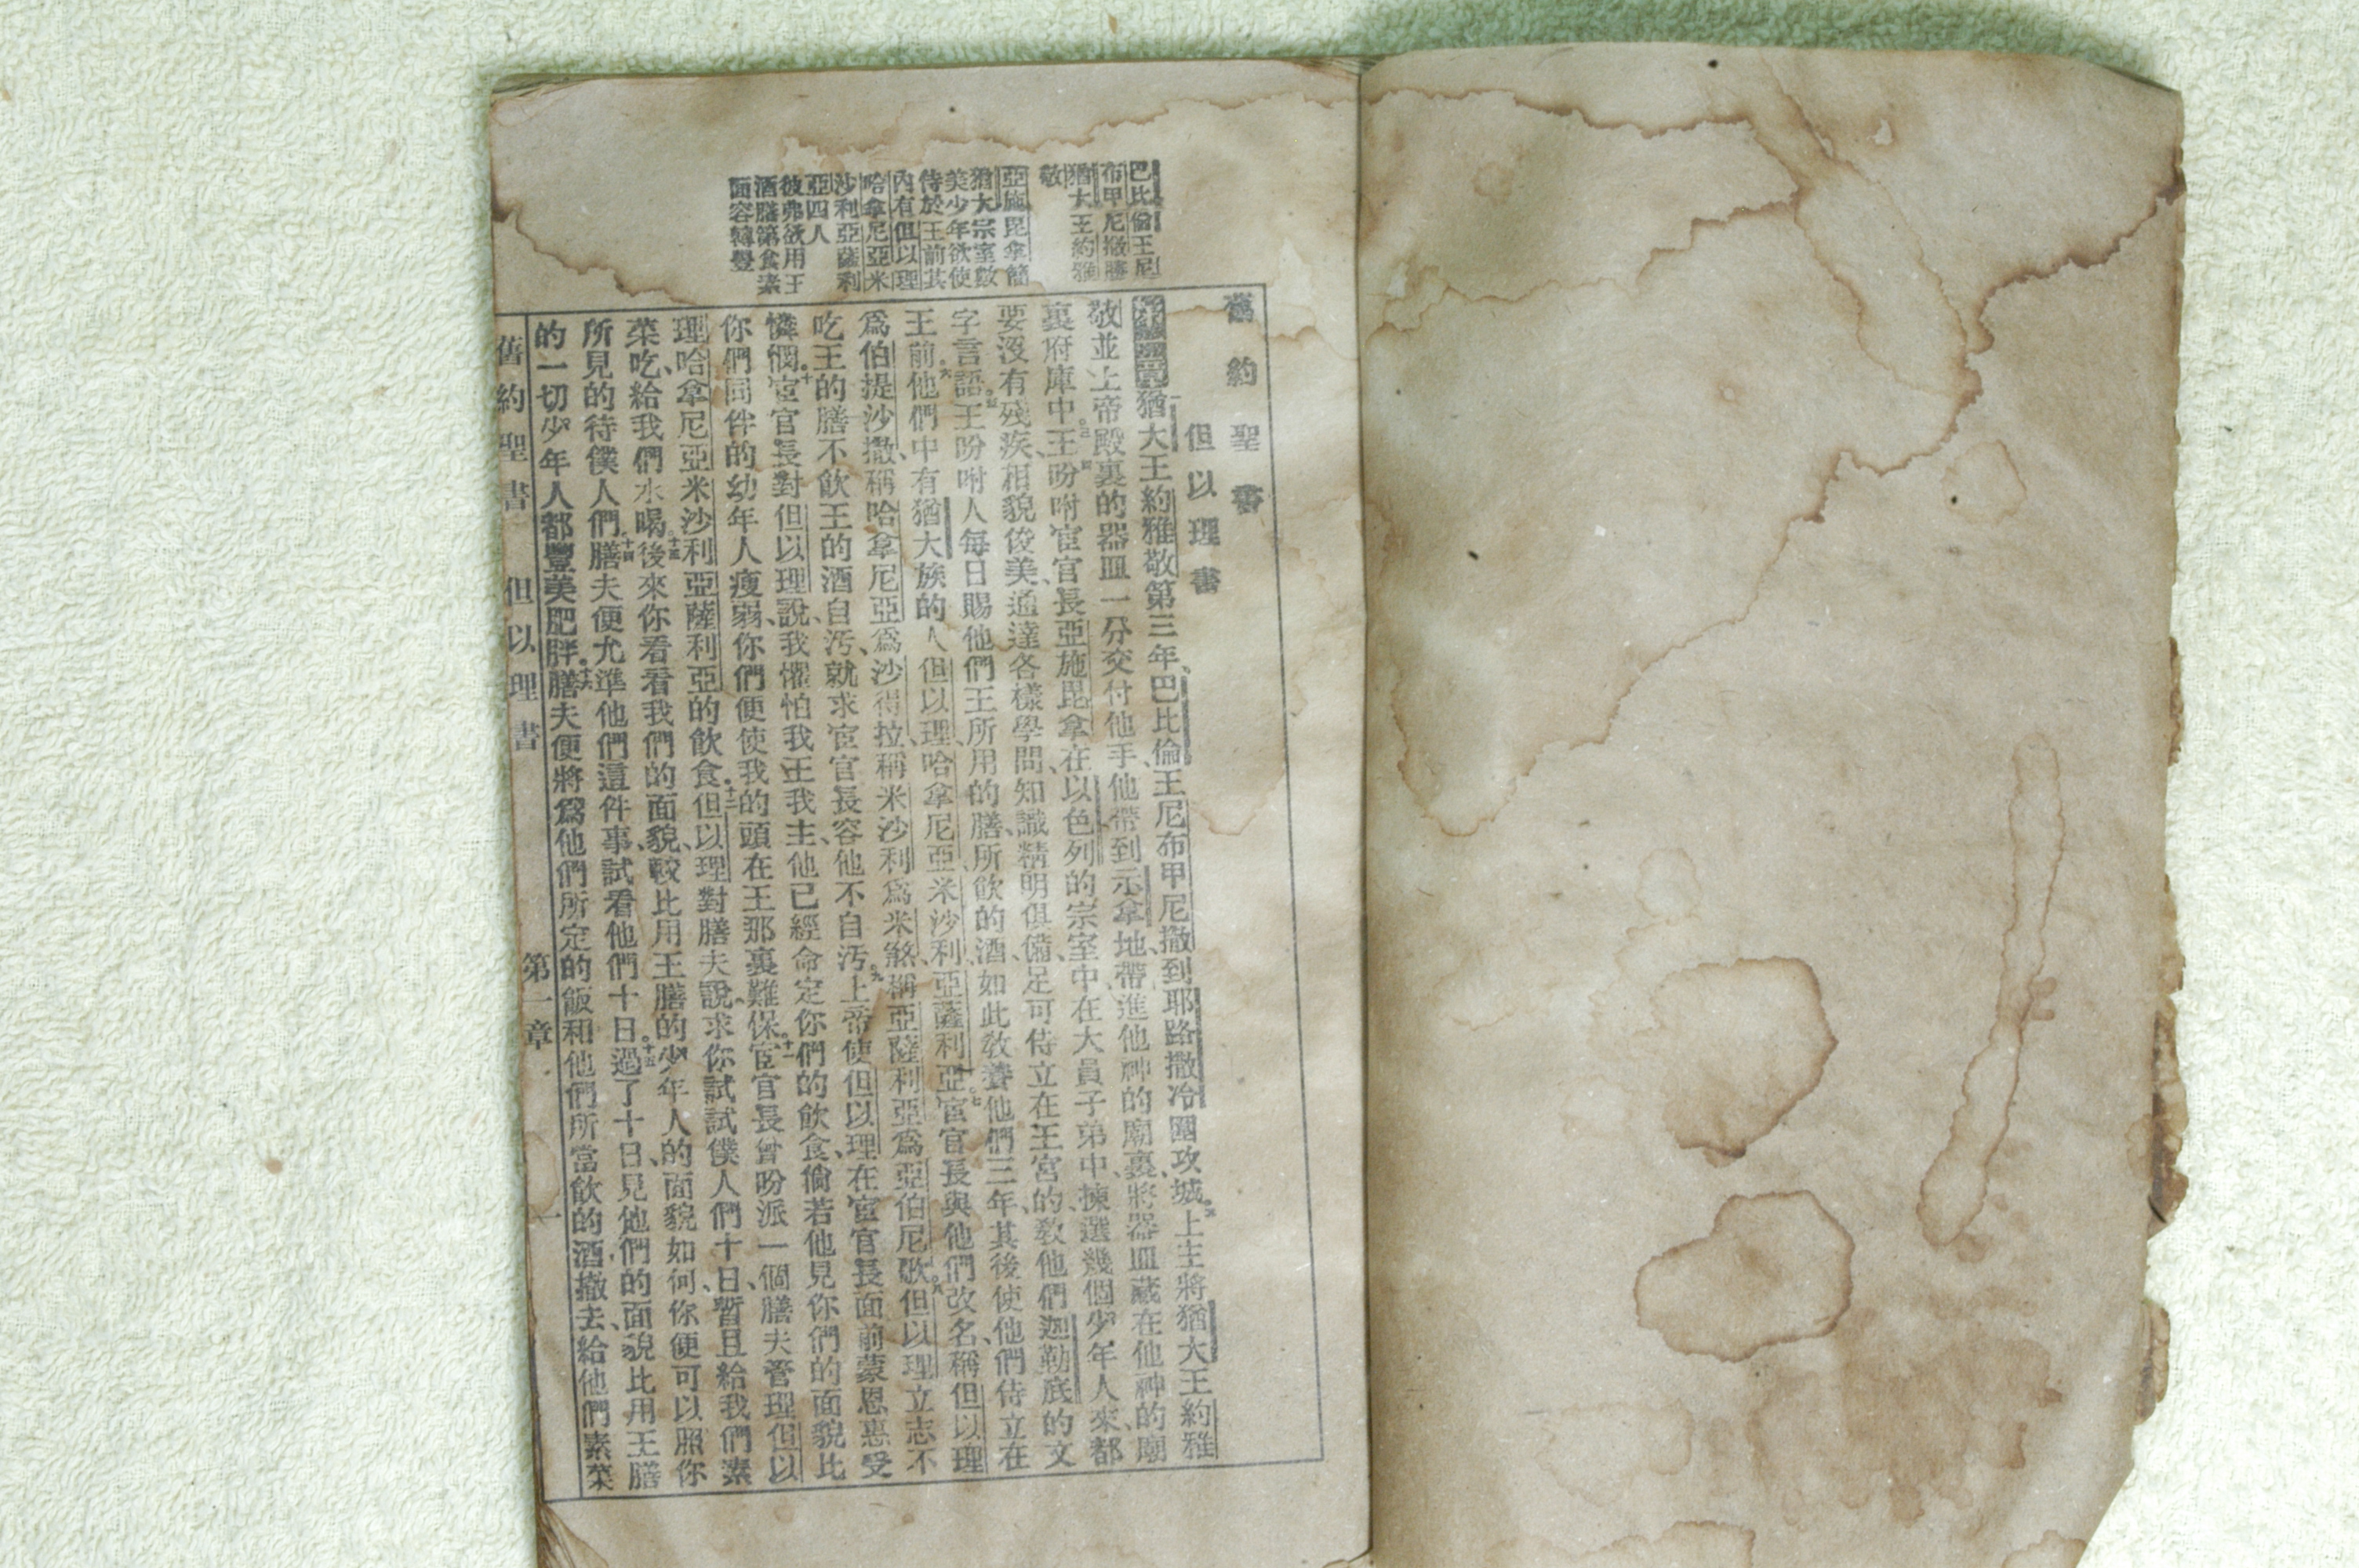 舊約聖書
但以理書
巴比倫王尼
布甲尼撒勝
猶大王約雅
敬
亞施毘拿簡
猶大宗室數
美少年欲使
侍於王前其
內有但以理
哈拿尼亞米
沙利亞薩利
亞四人
彼弗欲用王
酒膳第食素
面容轉豐
猶大王約雅敬第三年、巴比倫王尼布甲尼撒到耶路撒冷圍攻城。二上主將猶大王約雅
敬並上帝殿裏的器皿一分交付他手、他帶到示拿地、帶進他神的廟裏、將器皿藏在他神的廟
裏府庫中。三王吩咐宦官長亞施毘拿、在以色列的宗室中、在大員子弟中、揀選幾個少年人來、都
要沒有殘疾、相貌俊美、通達各樣學問、知識精明俱備、足可侍立在王宮的、教他們迦勒底的文
字言語。五王吩咐人每日賜他們王所用的膳、所飲的酒、如此教養他們三年、其後使他們侍立在
王前。六他們中有猶大族的人但以理、哈拿尼亞、米沙利、亞薩利亞。七宦官長與他們改名、稱但以理
爲伯提沙撒、稱哈拿尼亞爲沙得拉、稱米沙利爲米煞、稱亞薩利亞爲亞伯尼歌。八但以理立志不
吃王的膳不飲王的酒自汚、就求宦官長容他不自汚。九上帝使但以理在宦官長面前蒙恩惠受
憐憫。十宦官長對但以理說、我懼怕我王我主、他已經命定你們的飲食、倘若他見你們的面貌比
你們同伴的幼年人瘦弱、你們便使我的頭在王那裏難保。十一宦官長曾吩派一個膳夫管理但以
理哈拿尼亞米沙利亞薩利亞的飲食、十二但以理對膳夫說、求你試試僕人們十日、暫且給我們素
菜吃、給我們水喝、十三後來你看看我們的面貌、較比用王膳的少年人的面貌如何、你便可以照你
所見的待僕人們。十四膳夫便允準他們這件事、試看他們十日。十五過了十日、見他們的面貌比用王膳
的一切少年人都豐美肥胖。十六膳夫便將爲他們所定的飯和他們所當飲的酒撤去、給他們素菜
舊約聖書 但以理書 第一章 一